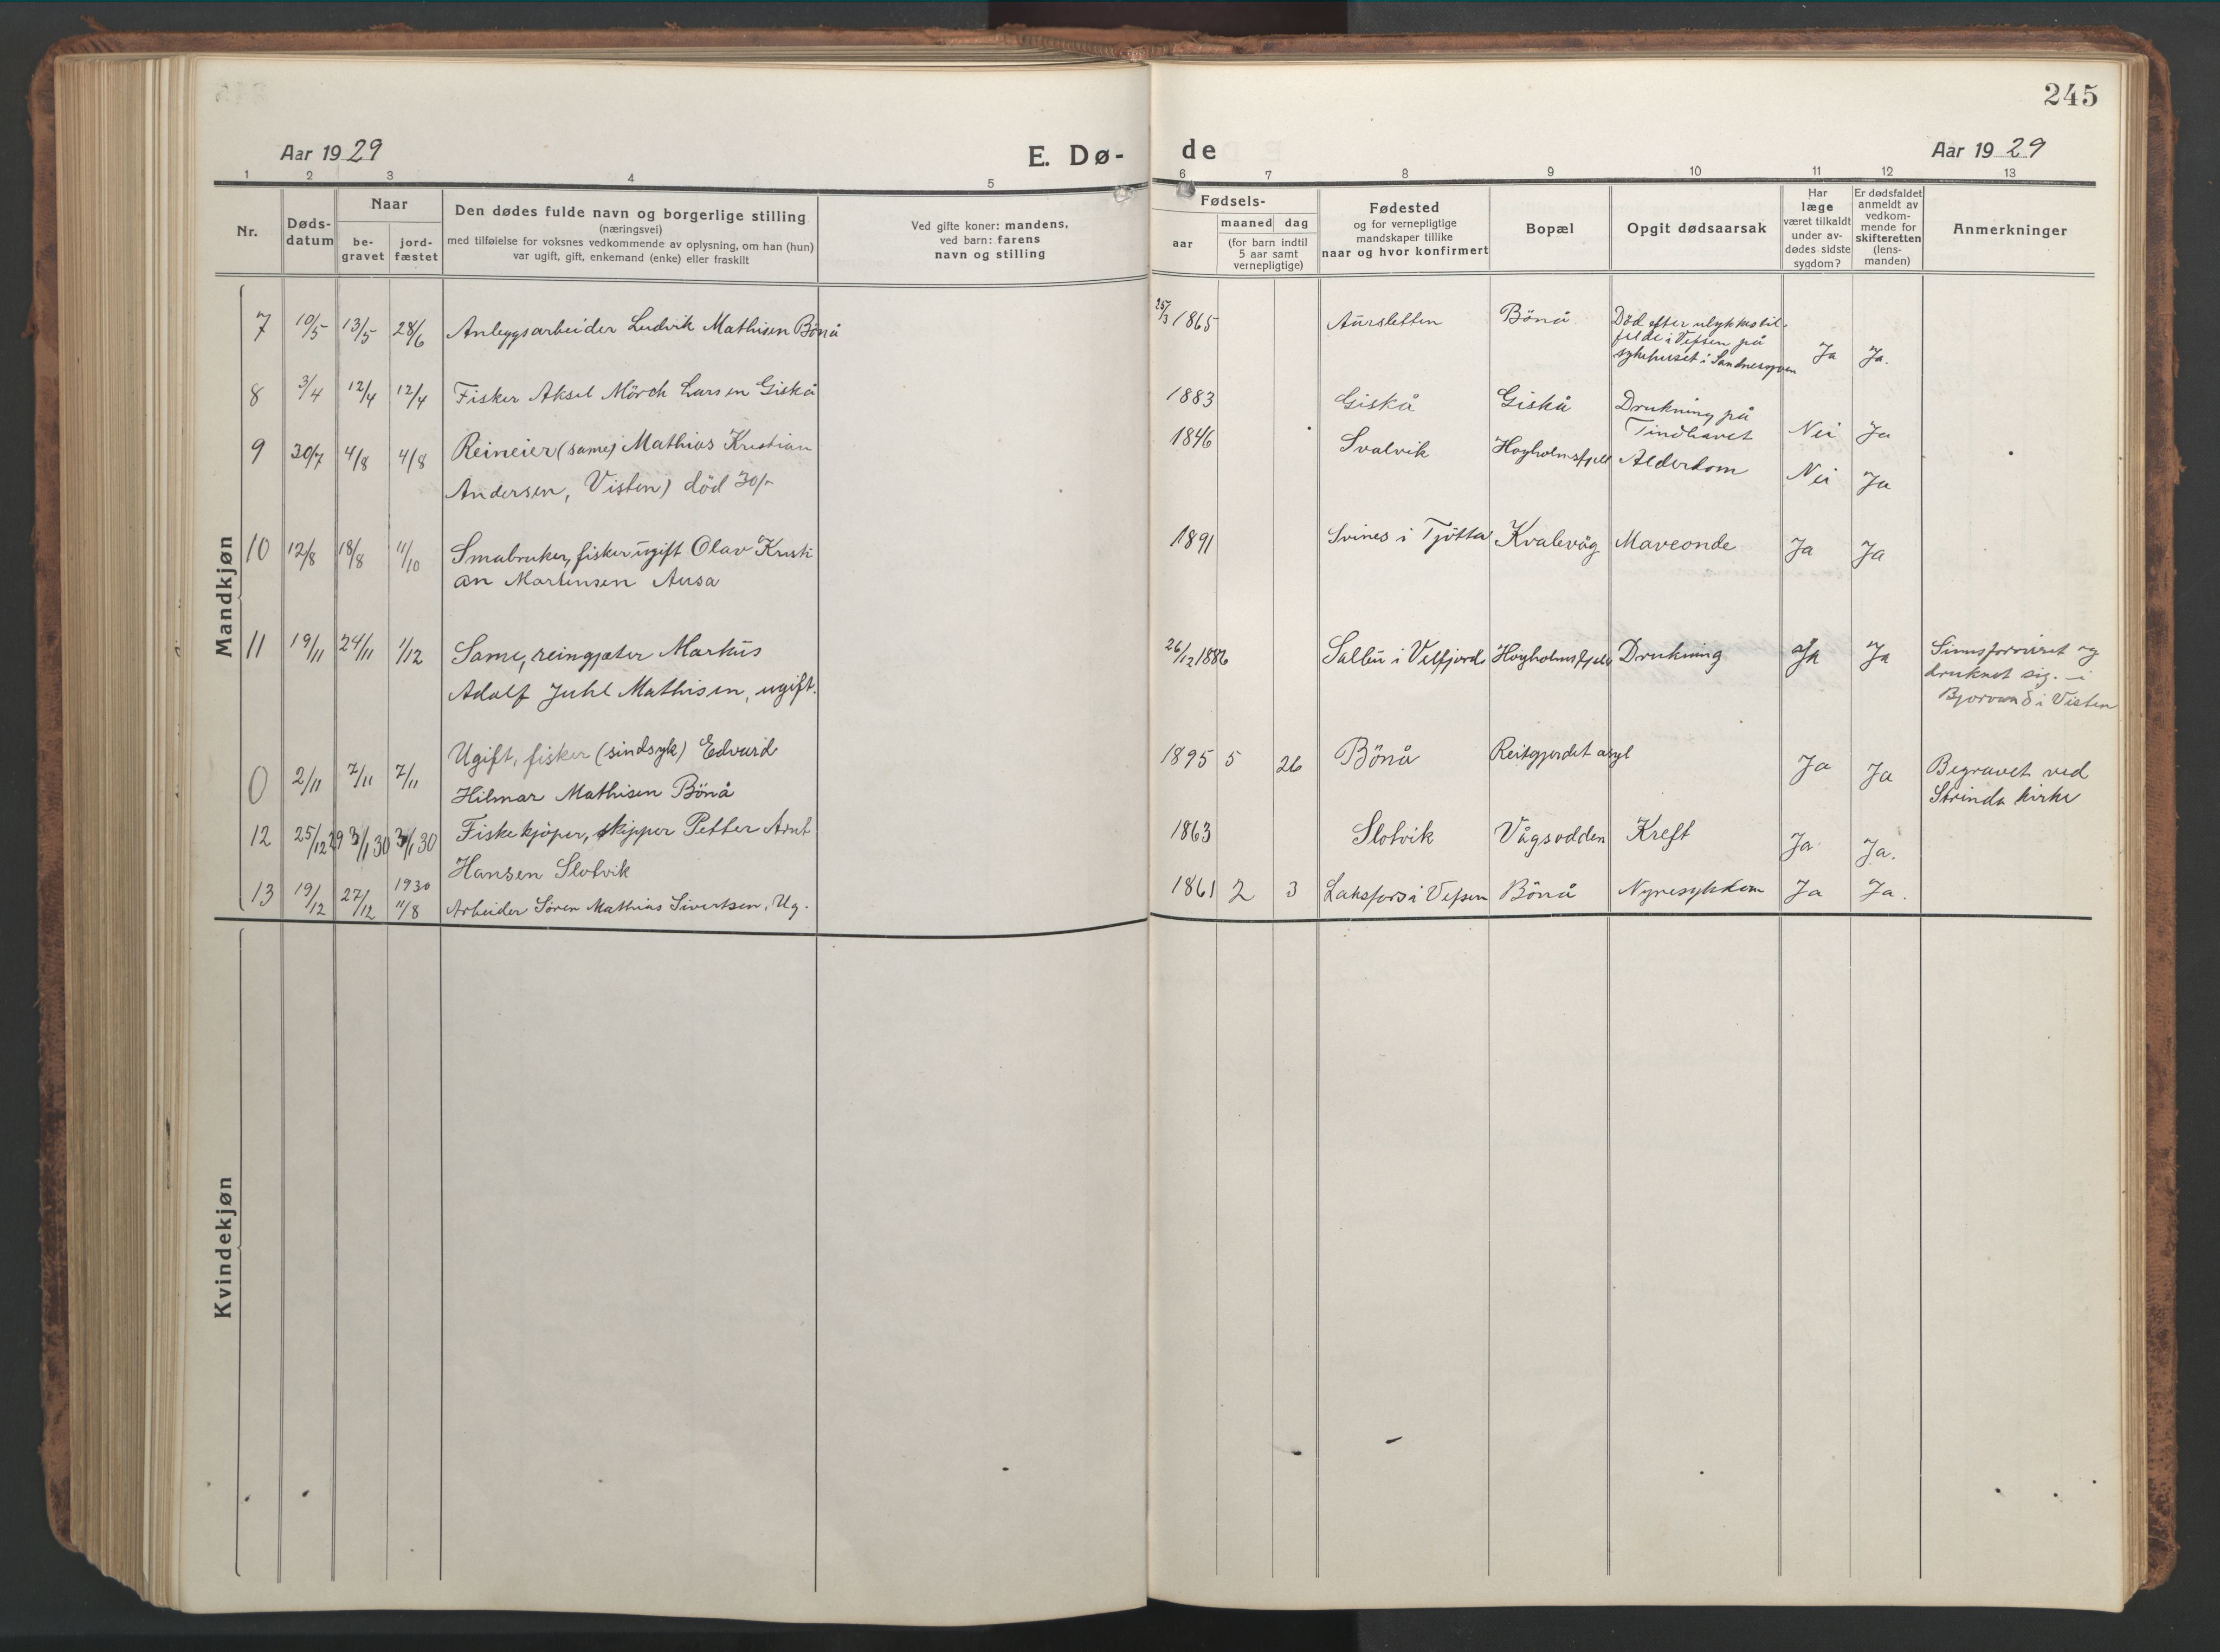 245
Aar 1929
E. Dø-
de
Aar 1929
1 2 3 4 5 6 7 8 9 10 11 12 13
Nr.
Døds-
datum
Naar
be-
gravet
jord-
fæstet
Den dødes fulde navn og borgerlige stilling
(næringsvei)
med tilføielse for voksnes vedkommende av oplysning, om han (hun)
var ugift, gift, enkemand (enke) eller fraskilt
Ved gifte koner: mandens,
ved barn: farens
navn og stilling
Fødsels-
aar
maaned dag
(for barn indtil
5 aar samt
vernepligtige)
Fødested
og for vernepligtige
mandskaper tillike
naar og hvor konfirmert
Bopæl
Opgit dødsaarsak
Har
læge
været tilkaldt
under av-
dødes sidste
sygdom?
Er dødsfaldet
anmeldt av
vedkom-
mende for
skifteretten
(lens-
manden)
Anmerkninger
Mandkjøn
7 10/5 13/5 28/6 Anleggsarbeider Ludvik Mathisen Bönå 25/3 1865 Aursletten Bönå Död efter ulykkestil-
felde i Vefsen på
sykehuset i Sandnessjoen Ja Ja.
8 3/4 12/4 12/4 Fisker Aksel Mörch Larsen Giskå 1883 Giskå Giskå Drukning på
Tindhavet Nei Ja
9 30/7 4/8 4/8 Reineier (same) Mathias Kristian
Andersen, Visten) död 30/- 1846 Svalvik Hoyholmsfjell Alderdom Nei Ja
10 12/8 18/8 11/10 Smabruker, fisker ugift Olav Kristi
an Martinsen Ausa 1891 Svines i Tjötta Kvalevåg Maveonde Ja Ja
11 19/11 24/11 1/12 Same, reingjæter Markus
Adolf Juhl Mathisen, ugift. 26/12 1886 Salbu i Velfjord Hoyholmsfjell Drukning Ja Ja Sinnsforvirret og
druknet sig. i
Bjorvand i Visten
0 2/11 7/11 7/11 Ugift, fisker (sindsyk) Edvard
Hilmar Mathisen Bönå 1895 5 26 Bönå Reitgjerdet asyl Ja Ja Begravet ved
Strinda kirke
12 25/12 29 3/1 30 3/1 30 Fiskekjöper, skipper Petter Arnt
Hansen Slotvik 1863 Slotvik Vågsodden Kreft Ja Ja.
13 19/12 27/12 1930 11/8 Arbeider Sören Mathias Sivertsen, Ug. 1861 2 3 Laksfors i Vefsen Bönå Nyresykdom Ja Ja.
Kvindekjøn